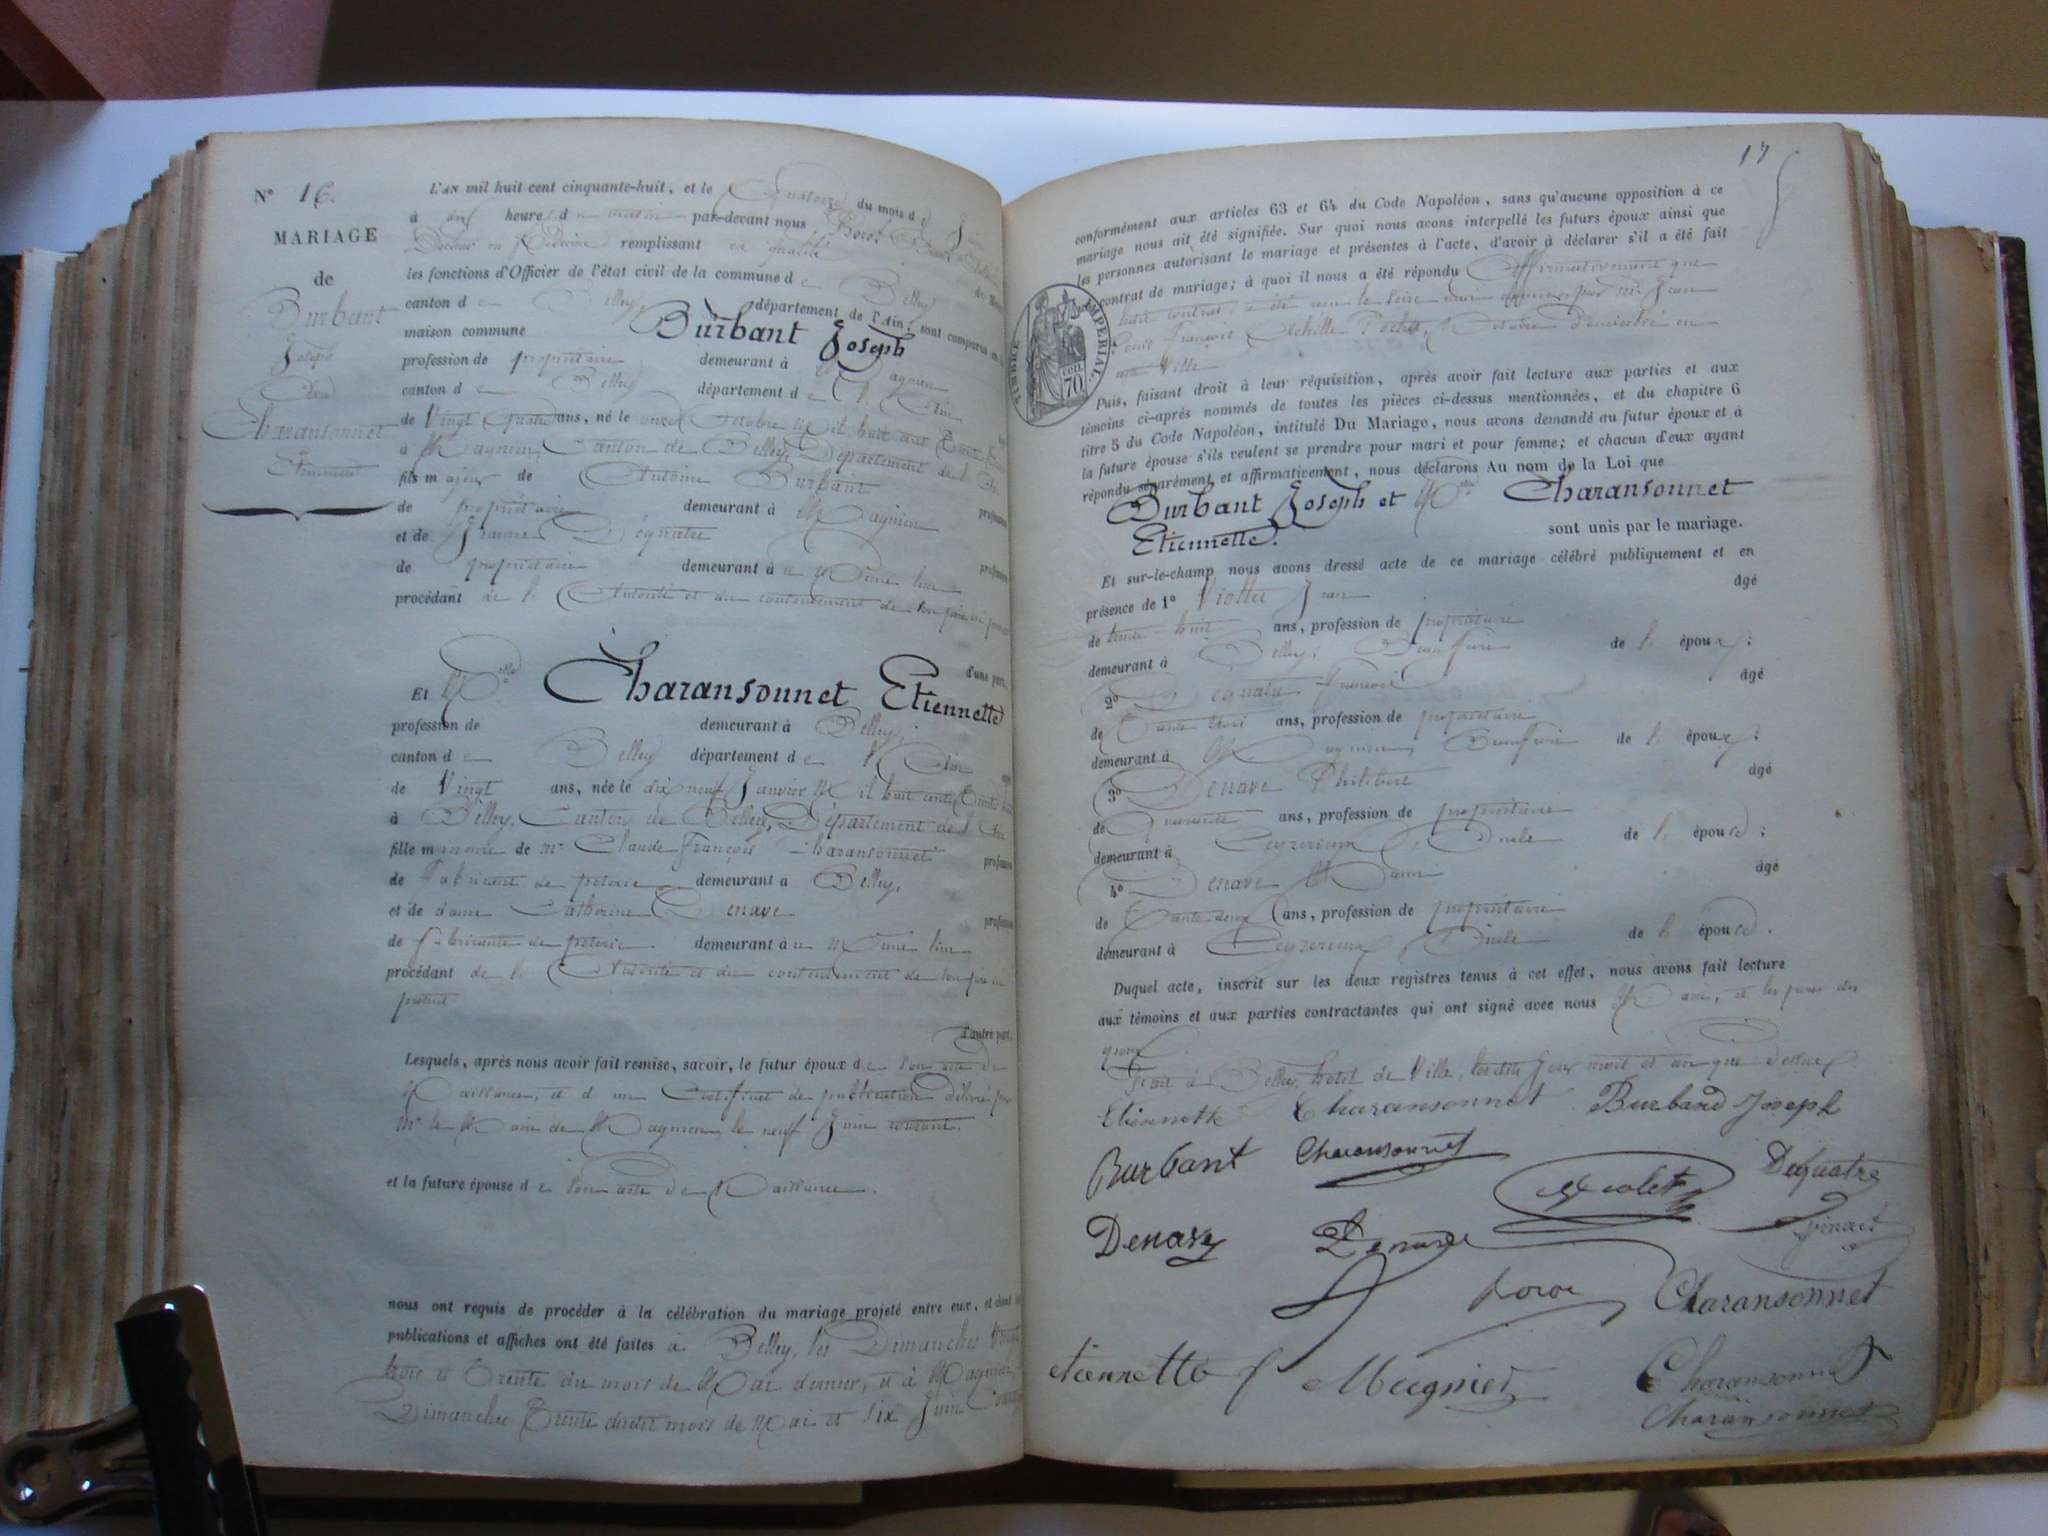 N° 16.
MARIAGE
de
Burbant
Joseph
Charansonnet
Etiennette
L'AN mil huit cent cinquante-huit, et le Quatorze du mois de
à dix heures du matin par-devant nous
Docteur en Médecine remplissant en qualité
les fonctions d'Officier de l'état civil de la commune de Belley
canton de Belley, département de l'Ain; sont comparus en
maison commune Burbant Joseph
profession de propriétaire demeurant à Magnieu
canton de Belley département de l'Ain
de Vingt Quatre ans, né le onze Octobre Mil huit cent Trente
à Magnieu, Canton de Belley, Département de l'Ain
fils majeur de Antoine Burbant
de propriétaire demeurant à Magnieu profession
et de Jeanne Déquatre
de propriétaire demeurant à u Même lieu
procédant de l'Autorité et du contentement de son père
d'une part,
Et Mlle Charansonnet Etiennette
profession de demeurant à Belley,
canton de Belley département de l'Ain
de Vingt ans, née le dix neuf Janvier Mil huit cent Trente huit
à Belley, Canton de Belley, Département de l'Ain
fille mineure de Mr Claude François Charansonnet profession
de Fabricant de poterie demeurant à Belley,
et de dame Catherine Denave profession
de fabricante de poterie demeurant à u Même lieu
procédant de l'Autorité et du contentement de son père
présent
d'autre part,
Lesquels, après nous avoir fait remise, savoir, le futur époux de son acte de
Naissance, et d'un Certificat de publication délivré par
Mr le Maire de Magnieu, le neuf Juin courant.
et la future épouse de son acte de Naissance.
nous ont requis de procéder à la célébration du mariage projeté entre eux, et dont
publications et affiches ont été faites à Belley, les Dimanches Vingt
trois et Trente du mois de Mai dernier, et à Magnieu
Dimanches Trente dudit mois de Mai et six Juin Courant
17
conformément aux articles 63 et 64 du Code Napoléon, sans qu'aucune opposition à ce
mariage nous ait été signifiée. Sur quoi nous avons interpellé les futurs époux ainsi que
les personnes autorisant le mariage et présentes à l'acte, d'avoir à déclarer s'il a été fait
contrat de mariage; à quoi il nous a été répondu Affirmativement que
ledit contrat a été par Mr Jean
Louis François Achille Notaire en
Ville
TIMBRE IMPERIAL.
70 cen.
Puis, faisant droit à leur réquisition, après avoir fait lecture aux parties et aux
témoins ci-après nommés de toutes les pièces ci-dessus mentionnées, et du chapitre 6
titre 5 du Code Napoléon, intitulé Du Mariage, nous avons demandé au futur époux et à
la future épouse s'ils veulent se prendre pour mari et pour femme; et chacun d'eux ayant
répondu séparément et affirmativement, nous déclarons Au nom de la Loi que
Burbant Joseph et Mlle Charansonnet
Etiennette. sont unis par le mariage.
Et sur-le-champ nous avons dressé acte de ce mariage célébré publiquement et en
présence de 1° Jean âgé
de trente-huit ans, profession de propriétaire
demeurant à Belley, Beau frère de l'époux;
2° Dequatre François âgé
de Trente trois ans, profession de propriétaire
demeurant à Magnieu, de l'époux;
3° Denave Philibert âgé
de Quarante ans, profession de propriétaire
demeurant à Ceyzerieux, Oncle de l'épouse;
4° Denave âgé
de Trente deux ans, profession de propriétaire
demeurant à Ceyzerieux, Oncle de l'épouse.
Duquel acte, inscrit sur les deux registres tenus à cet effet, nous avons fait lecture
aux témoins et aux parties contractantes qui ont signé avec nous Maire, et les pères des
époux.
Fait à Belley, hotel de Ville, lesdits jour mois et an que dessus.
Etiennette Charansonnet Burband Joseph
Burbant Charansonnet Dequatre
Denave Denave
Charansonnet
Etiennette Mugnier Charansonnet
Charansonnet